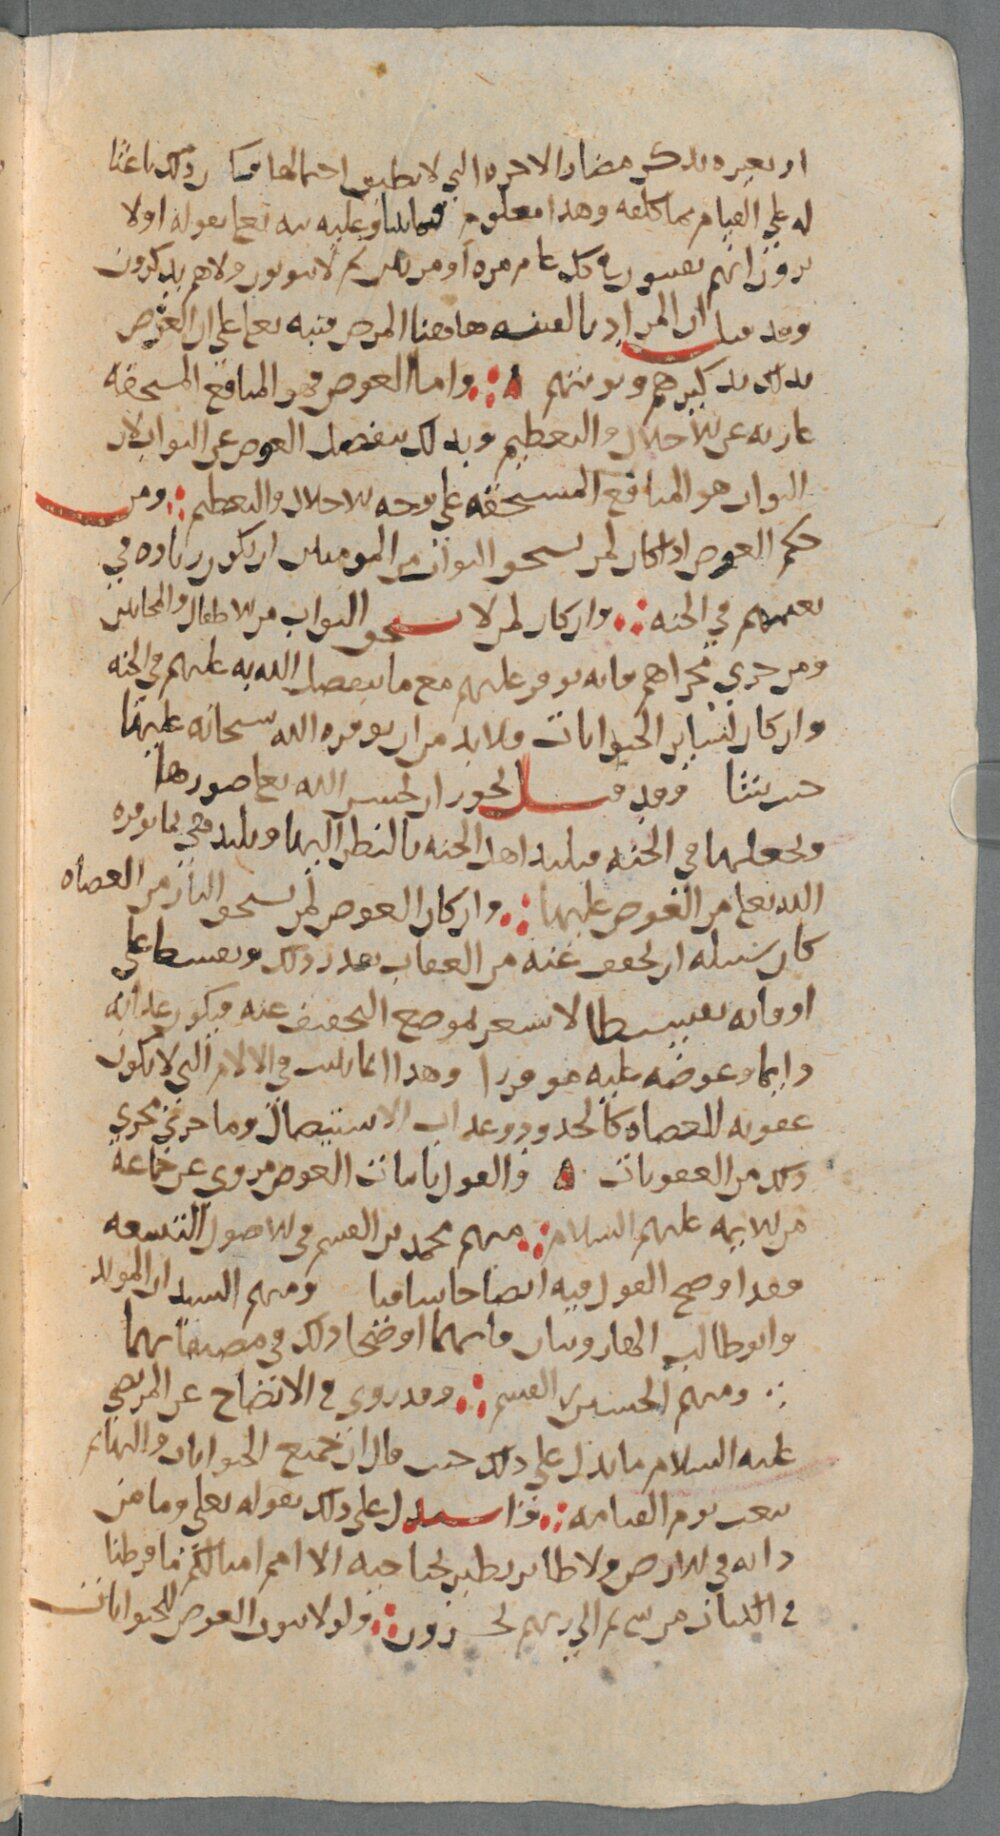 او بغيره بذكر مضار الاخره التي لا نطيق احتمالها فيكون ذلك باعثا
له على القيام بما كلفه وهذا معلوم فيما بيننا وعليه نبه تعالى بقوله اولا
يرون انهم يفتنون في كل عام مره او مرتين ثم لا يتوبون ولا هم يذكرون
وقد قيل ان المراد بالفتنه هاهنا المرض فنبه تعالى على ان الغرض
بذلك تذكيرهم وتوبتهم واما العوض فهو المنافع المستحقه
عاريه عن الاجلال والتعظيم وبذلك ينفصل العوض عن الثواب لان
الثواب هو المنافع المستحقه على وجه الاجلال والتعظيم ومن
حكم العوض اذا كان لمن يستحق الثواب من المومنين ان يكون زياده في
نعيمهم في الجنه وان كان لمن لا يستحق الثواب من الاطفال والمجانين
ومن جرى مجراهم فانه يوفر عليهم مع ما يتفضل الله به عليهم في الجنه
وان كان لساير الحيوانات فلا بد من ان يوفره الله سبحانه عليها
حيث شا وقد قيل يجوز ان يحسن الله تعالى صورها
ويجعلها في الجنه فيلتذ اهل الجنه بالنظر اليها ويلتذ هي بما يوفره
الله تعالى من العوض عليها وان كان العوض لمن يستحق النار من العصاه
كان سبيله ان يخفف عنه من العقاب بقدر ذلك ويقسط على
اوقاته تقسيطا لا يشعر بموضع التخفيف عنه فيكون عذابه
دايما وعوضه عليه موفرا وهذا انما يثبت في الالام التي لا تكون
عقوبه للعصاه كالحدود وعذاب الاستيصال وما جرى مجرى
ذلك من العقوبات والقول باثبات العوض مروي عن جماعه
من الايمه عليهم السلام منهم محمد بن القسم في الاصول التسعه
فقد اوضح القول فيه ايضاحا شافيا ومنهم السيدان المويد
وابو طالب الهارونيان فانهما اوضحا ذلك في مصنفاتهما
ومنهم الحسين بن القسم وقد روي في الايضاح عن المرتضى
عليه السلام ما يدل على ذلك حيث قال ان جميع الحيوانات والبهايم
تبعث يوم القيامه واستدل على ذلك بقوله تعالى وما من
دابه في الارض ولا طاير يطير بجناحيه الا امم امثالكم ما فرطنا
في الكتاب من شي ثم الى ربهم يحشرون ولولا ثبوت العوض للحيوانات